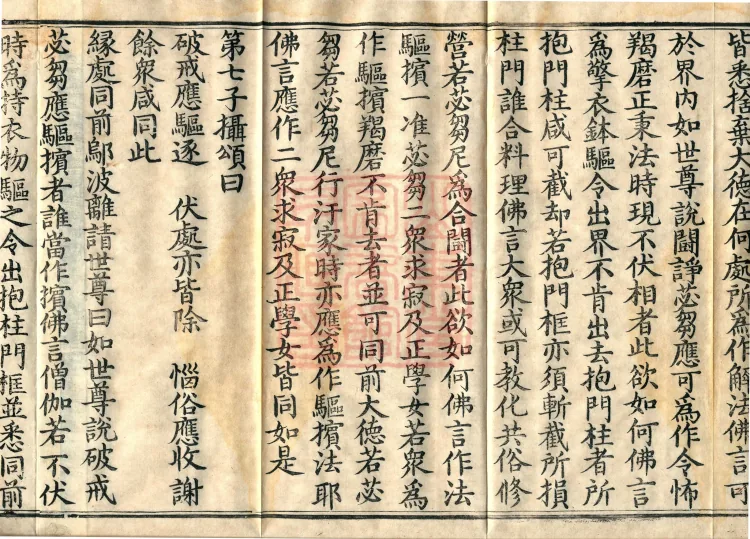 皆悉捨棄大德在何處所爲作解法佛言可
於界內如世尊說鬪諍苾芻應可爲作令怖
羯磨正秉法時現不伏相者此欲如何佛言
爲擎衣鉢驅令出界不肯出去抱門柱者所
抱門柱咸可截却若抱門框亦須斬截所損
柱門誰合料理佛言大衆或可教化共俗修
營若苾芻尼爲合鬪者此欲如何佛言作法
驅擯一准苾芻二衆求寂及正學女若衆爲
作驅擯羯磨不肯去者並可同前大德若苾
芻若苾芻尼行汙家時亦應爲作驅擯法耶
佛言應作二衆求寂及正學女皆同如是
第七子攝頌曰
破戒應驅逐　伏處亦皆除　惱俗應收謝
餘衆咸同此
緣處同前鄔波離請世尊曰如世尊說破戒
苾芻應驅擯者誰當作擯佛言僧伽若不伏
時爲持衣物驅之令出抱柱門框並悉同前